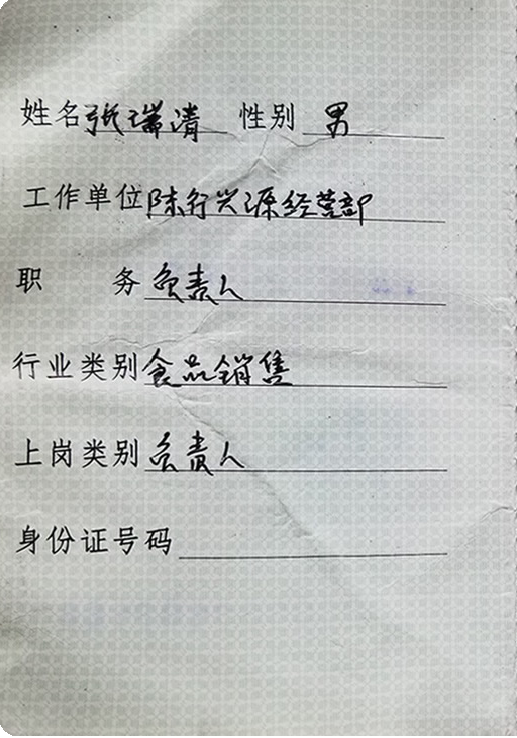 姓名张瑞清 性别 男
工作单位陈行兴源经营部
职 务 负责人
行业类别食品销售
上岗类别负责人
身份证号码